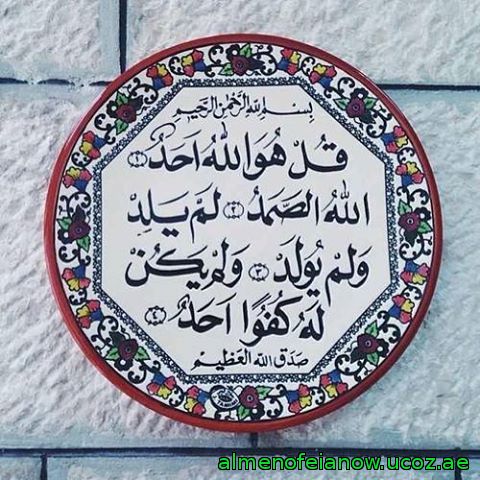 بِسْمِ اللهِ الرَّحْمٰنِ الرَّحِيْمِ
قُلْ هُوَ اللهُ اَحَدٌ ﴿١﴾
اَللهُ الصَّمَدُ ﴿٢﴾ لَمْ يَلِدْ
وَلَمْ يُولَدْ ﴿٣﴾ وَلَمْ يَكُنْ
لَهُ كُفُوًا اَحَدٌ ﴿٤﴾
صَدَقَ اللهُ الْعَظِيْمِ
almenofeianow.ucoz.ae